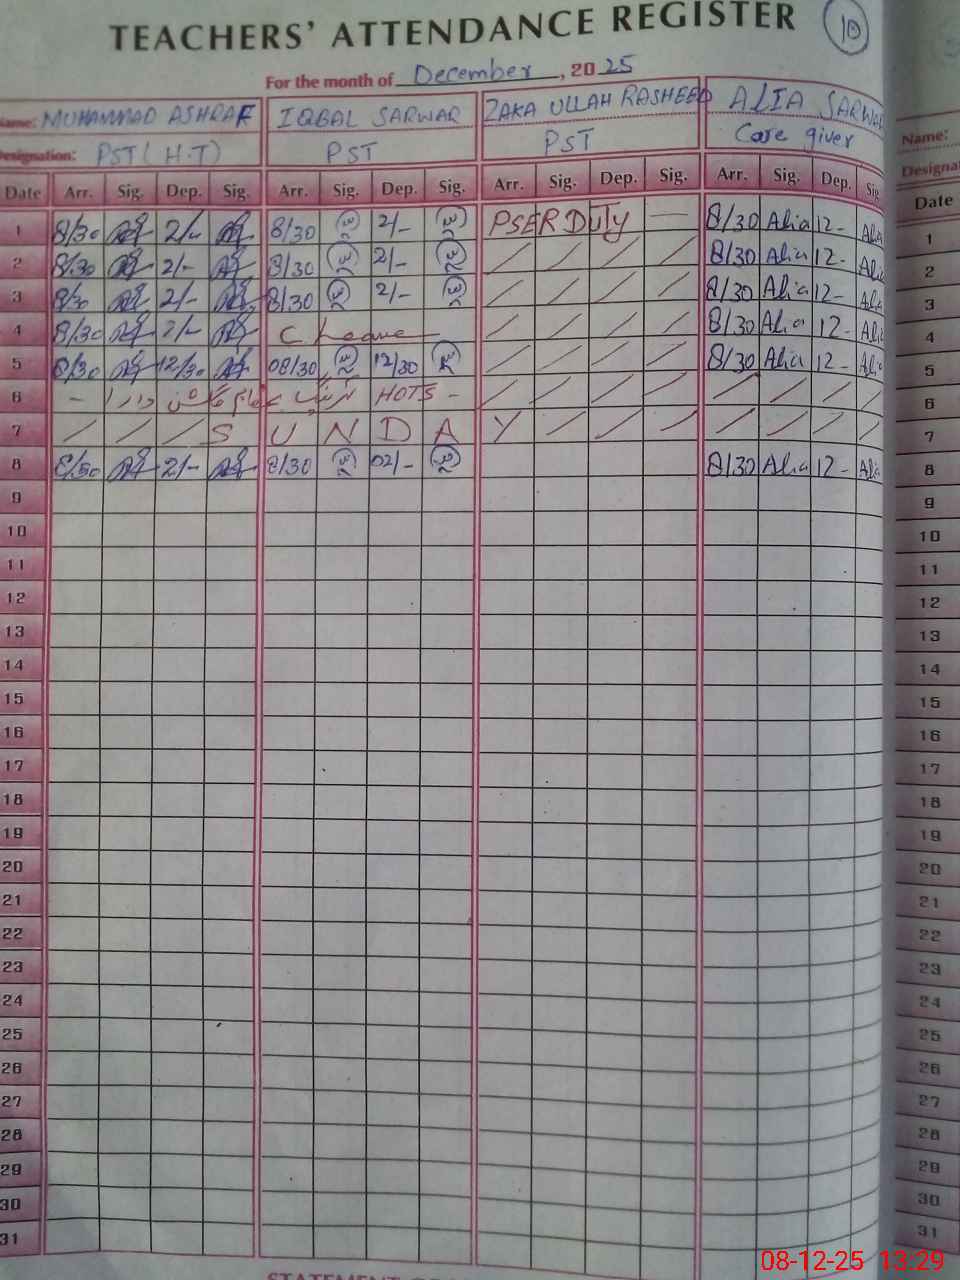 TEACHERS' ATTENDANCE REGISTER 10
For the month of December, 20 25
Name: MUHAMMAD ASHRAF IQBAL SARWAR ZAKA ULLAH RASHEED ALIA SARWAR Name:
Designation: PST (H.T) PST PST Care giver
Date Arr. Sig. Dep. Sig. Arr. Sig. Dep. Sig. Arr. Sig. Dep. Sig. Arr. Sig. Dep. Sig. Date
1 8/30 2/- 8/30 2/- PSER Duty — 8/30 Alia 12- Alia 1
2 8/30 2/- 8/30 2/- / / / / 8/30 Alia 12- Alia 2
3 8/30 2/- 8/30 2/- / / / / 8/30 Alia 12- Alia 3
4 8/30 2/- C. Leave / / / / 8/30 Alia 12- Alia 4
5 8/30 12/30 08/30 12/30 / / / / 8/30 Alia 12- Alia 5
6 HOTS - / / / / / / / / 6
7 / / / S U N D A Y / / / / / / / 7
8 8/30 2/- 8/30 02/- 8/30 Alia 12- Alia 8
9 9
10 10
11 11
12 12
13 13
14 14
15 15
16 16
17 17
18 18
19 19
20 20
21 21
22 22
23 23
24 24
25 25
26 26
27 27
28 28
29 29
30 30
31 31
08-12-25 13:29